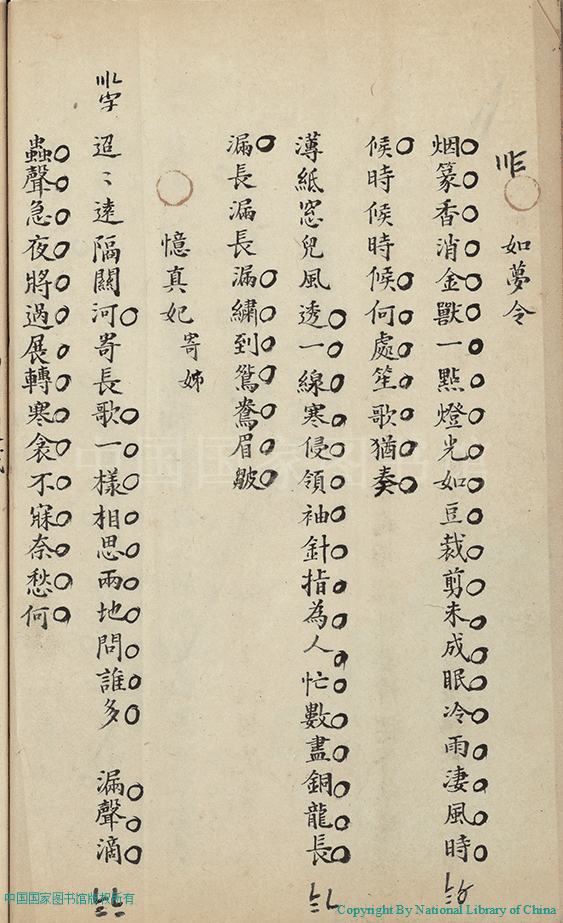 如夢令
烟篆香消金獸一點燈光如豆裁剪未成眠冷雨淒風時
候時候時候何處笙歌猶奏
薄紙窓兒風透一線寒侵領袖針指為人忙數盡銅龍長
漏長漏長漏繡到鴛鴦眉皺
憶真妃寄姊
迢〻遠隔關河寄長歌一樣相思兩地問誰多 漏聲滴
蟲聲急夜將過展轉寒衾不寐奈愁何
中国国家图书馆
中国国家图书馆版权所有
Copyright By National Library of China